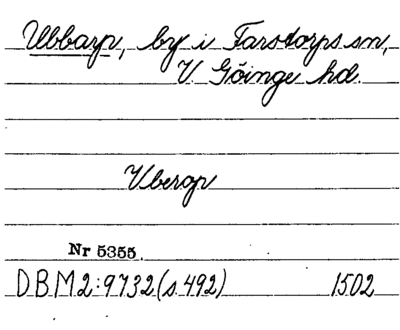 Ubbarp, by i Farstorps sn,
V. Göinge hd.
Vberop
Nr 5355.
DBM2:9732(s.492) 1502